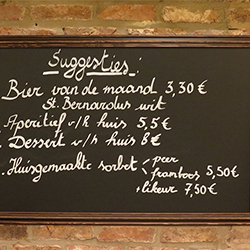 Suggesties:
. Bier van de maand 3,30 €
St. Bernardus wit
. Aperitief v/h huis 5,5 €
. Dessert v/h huis 6 €
. Huisgemaakte sorbet - peer
- framboos 5,50€
+ likeur 7,50€